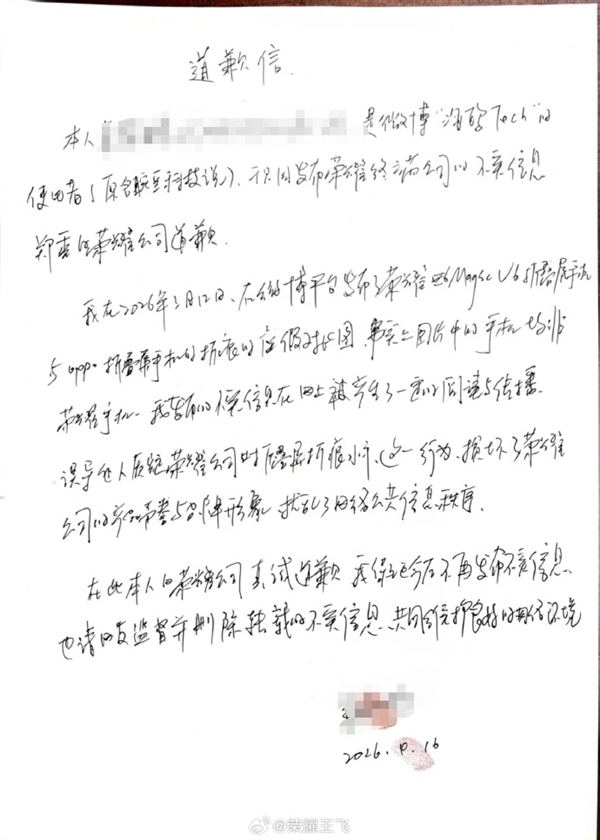 道歉信
本人 是微博“ Tech”的
使用者(原名 科技说)、我因发布荣耀终端公司的不实信息
郑重向荣耀公司道歉
我在2026年3月12日、在微博平台发布了荣耀 Magic V6折叠屏手机
与oppo折叠屏手机的折痕的虚假对比图、事实上图片中的手机均非
荣耀手机、我发布的不实信息在网上被产生了一定的阅读与传播、
误导他人质疑荣耀公司对折叠屏折痕 这一行为、损坏了荣耀
公司的产品 与品牌形象、扰乱了网络公共信息秩序、
在此本人向荣耀公司真诚道歉 我保证今后不再发布不实信息、
也请网友监督并删除转载的不实信息、共同维护良好的网络环境
2026. 16
@荣耀王飞